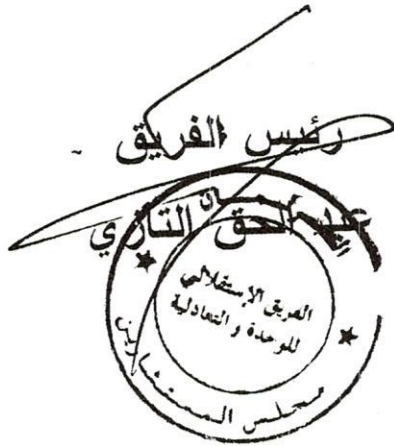 رئيس الفريق
عبد الحق التازي
الفريق الإستقلالي
للوحدة و التعادلية
مجلس المستشارين